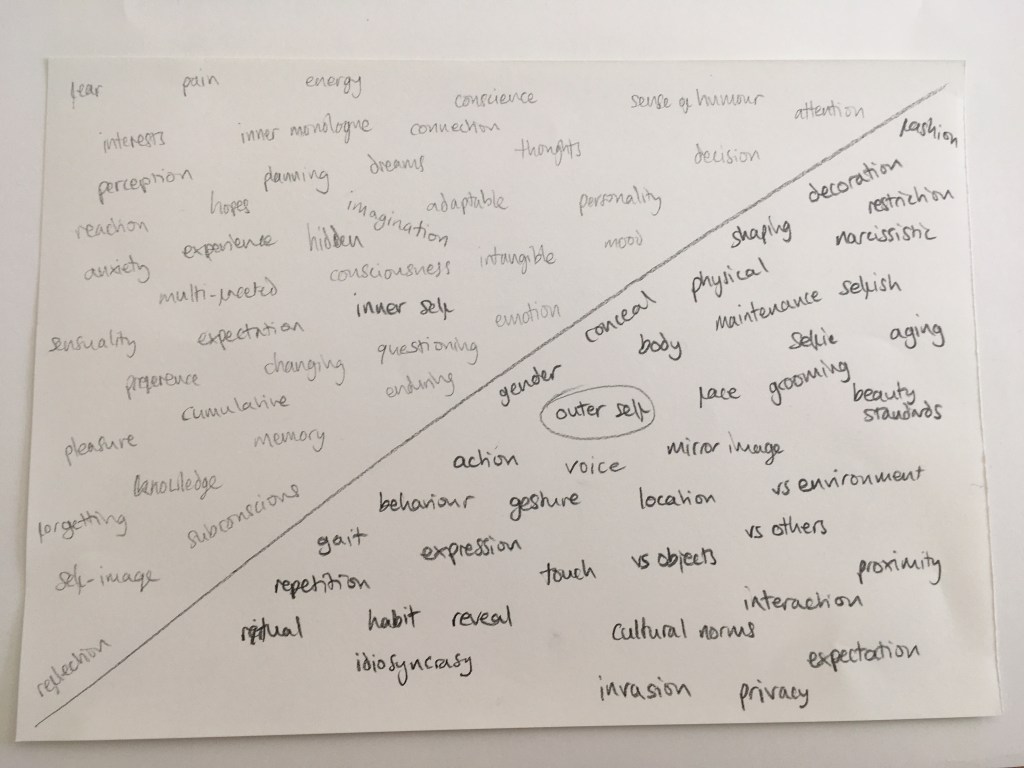 fear pain energy
conscience sense of humour attention
interests inner monologue connection
perception planning dreams thoughts decision
reaction hopes imagination adaptable personality
anxiety experience hidden
multi-faceted consciousness intangible mood
sensuality expectation inner self emotion
preference changing questioning
cumulative enduring
pleasure memory
knowledge
forgetting subconscious
self-image
reflection
fashion
decoration
restriction
shaping narcissistic
physical
conceal maintenance selfish
body selfie aging
gender
outer self face grooming beauty
standards
action voice mirror image
behaviour gesture location vs environment
gait expression vs others
repetition touch vs objects proximity
interaction
ritual habit reveal cultural norms
idiosyncrasy expectation
invasion privacy